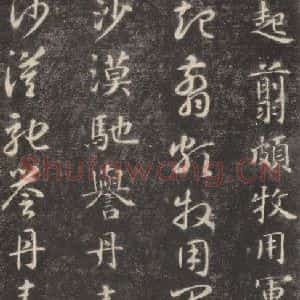 起翦頗牧用軍
起翦頗牧用軍
沙漠馳譽丹青
沙漠馳譽丹青
Shufawang.CN